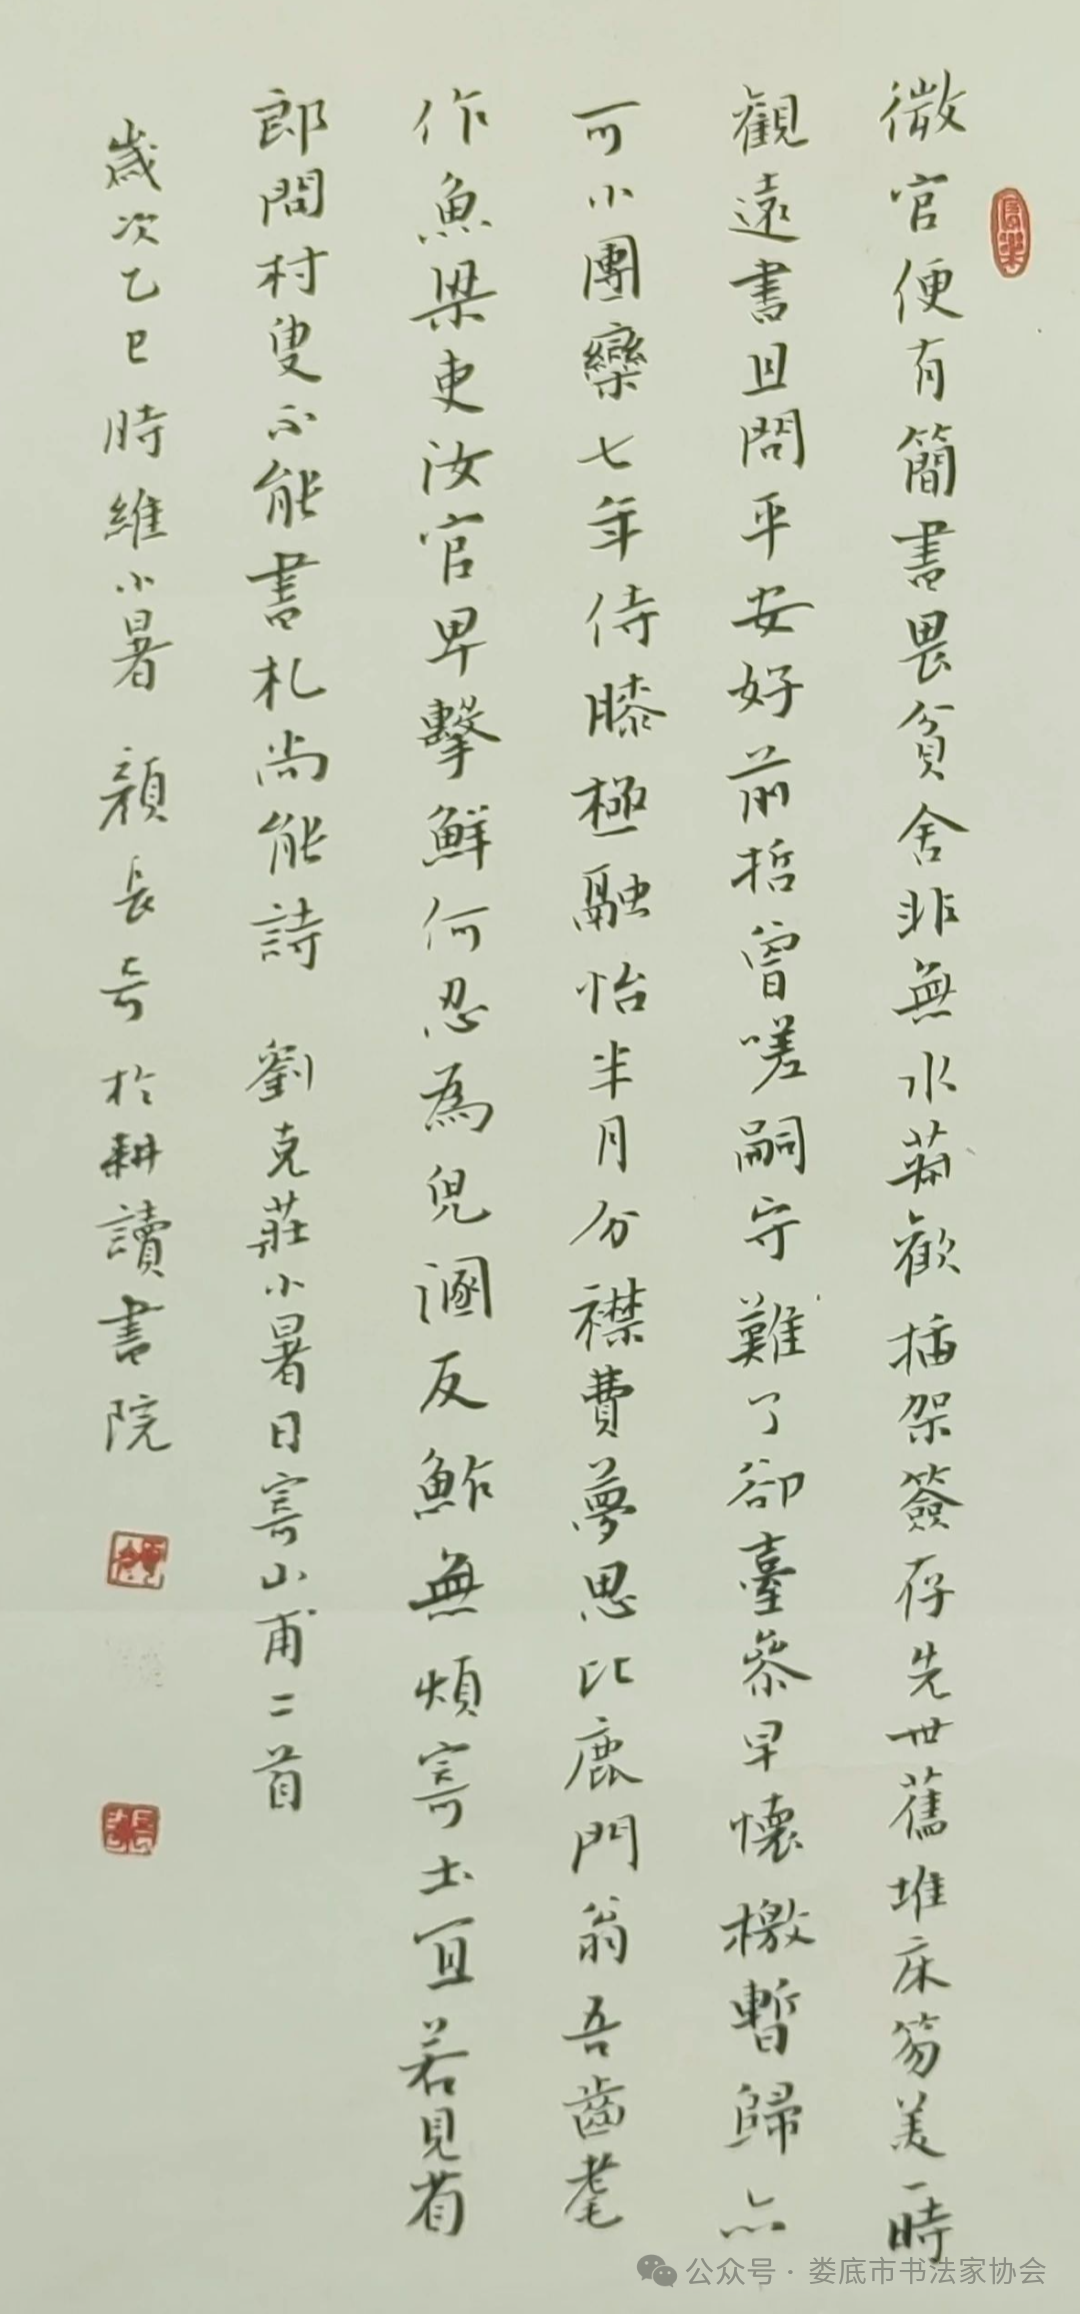 微官便有簡書畏貧舍非無水菽歡插架簽存先世舊堆床笏美一時
觀遠書且問平安好前哲曾嗟嗣守難了卻臺參早懷檄暫歸亦
可小團欒七年侍膝極融怡半月分襟費夢思比鹿門翁吾齒耄
作魚梁吏汝官卑擊鮮何忍為兒溷反鮓無煩寄土宜若見省
郎問村叟不能書札尚能詩 劉克莊小暑日寄山甫二首
歲次乙巳時維小暑 顏長 於耕讀書院
公众号·娄底市书法家协会